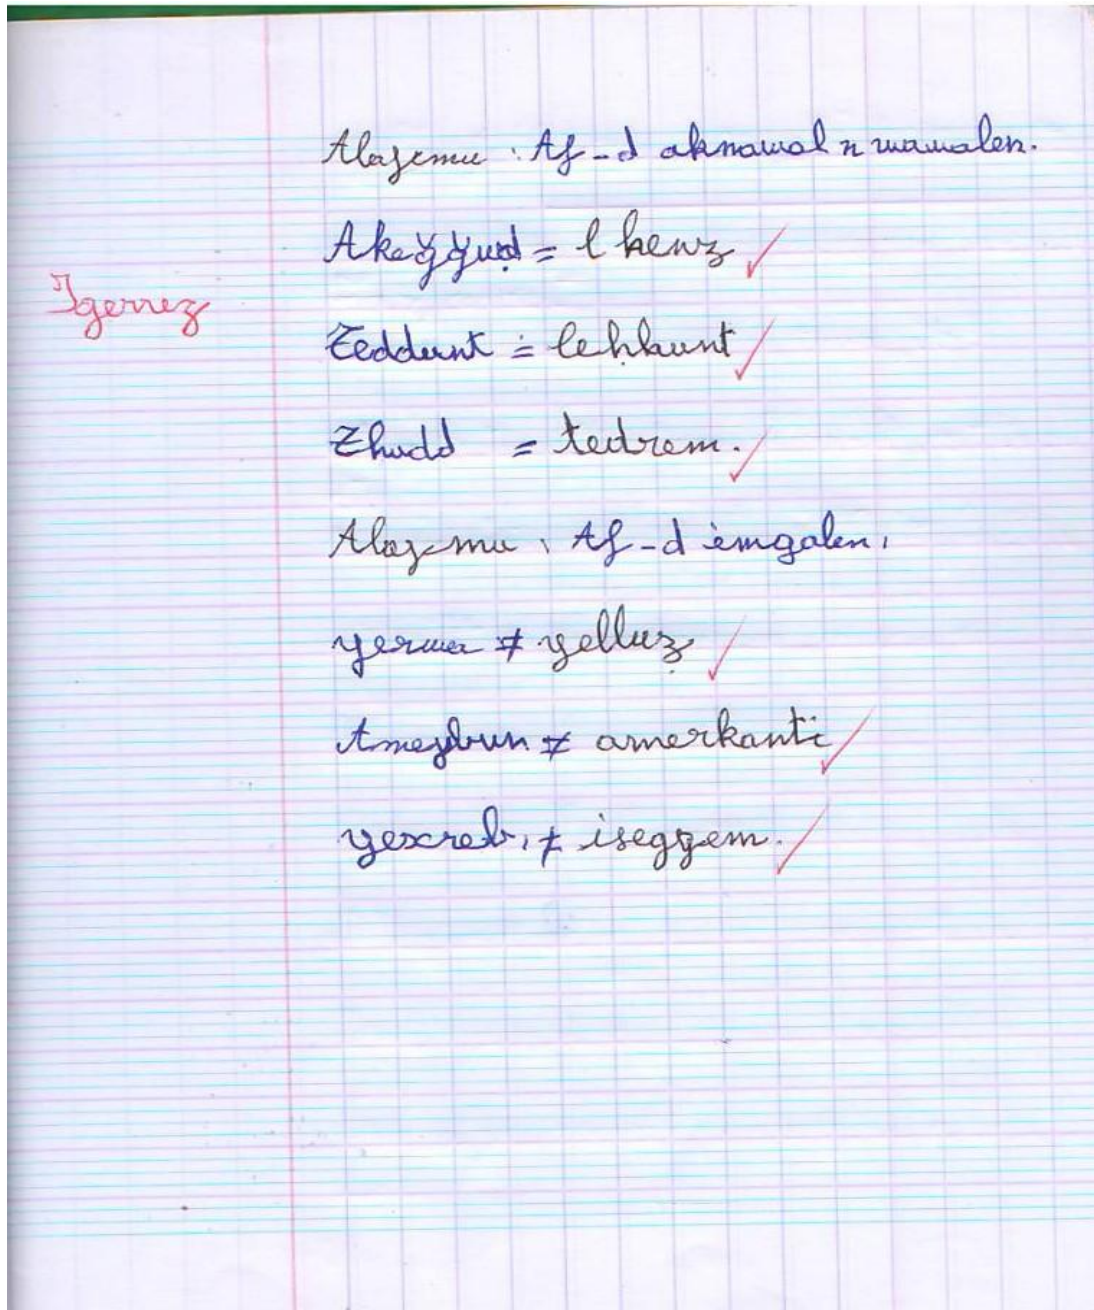 Alaɣemu : Af-d aknawal n wawalen.
Akeǧǧuḍ = l kenz
Igerrez
Teddunt = leḥkunt
Thudd = tedrem.
Alaɣmu : Af-d imgalen.
yerwa ≠ yelluẓ
Ameɣbun ≠ amerkanti
yexreb, ≠ iseggem.